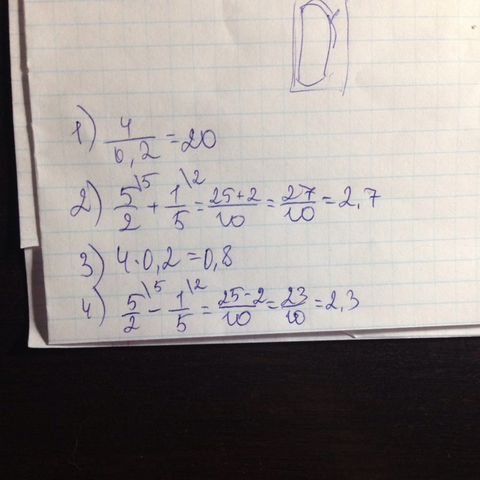 1) 4/0,2 = 20
2) 5\5/2 + 1\2/5 = 25+2/10 = 27/10 = 2,7
3) 4·0,2 = 0,8
4) 5\5/2 − 1\2/5 = 25-2/10 = 23/10 = 2,3